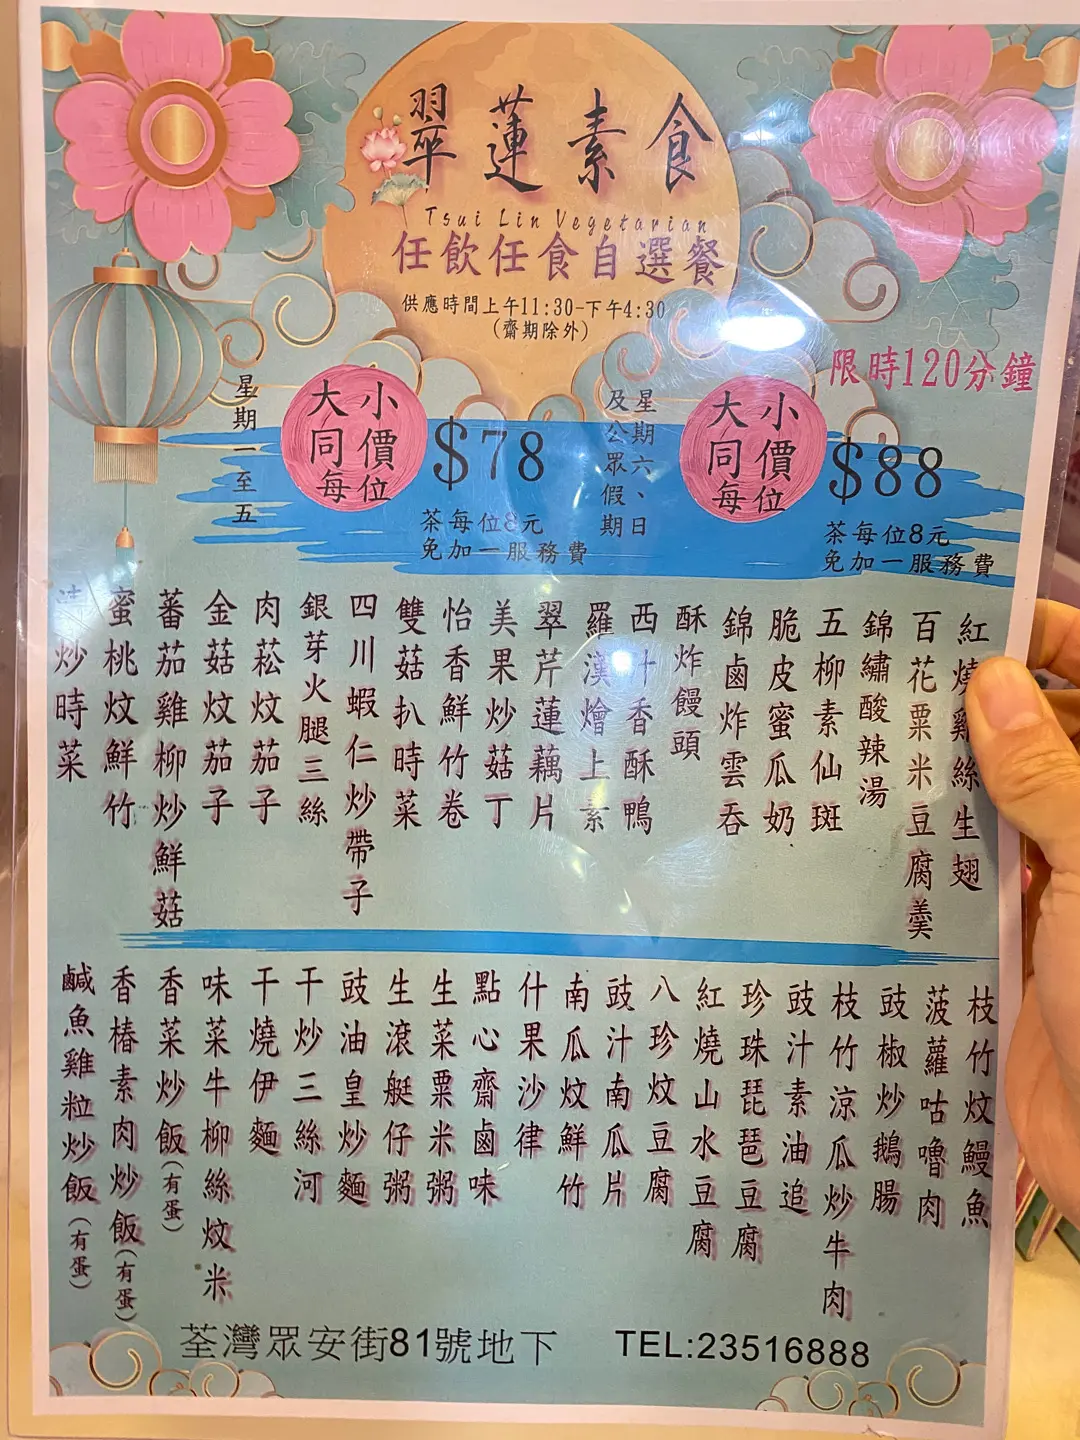 翠蓮素食
Tsui Lin Vegetarian
任飲任食自選餐
供應時間上午11:30-下午4:30
(齋期除外)
限時120分鐘
星期一至五
大小
同價
每位
$78
茶每位8元
免加一服務費
星期六、日
及公眾假期
大小
同價
每位
$88
茶每位8元
免加一服務費
紅燒雞絲生翅
百花粟米豆腐羹
錦繡酸辣湯
五柳素仙斑
脆皮蜜瓜奶
錦鹵炸雲吞
酥炸饅頭
西汁香酥鴨
羅漢燴上素
翠芹蓮藕片
美果炒菇丁
怡香鮮竹卷
雙菇扒時菜
四川蝦仁炒帶子
銀芽火腿三絲
肉菘炆茄子
金菇炆茄子
蕃茄雞柳炒鮮菇
蜜桃炆鮮竹
清炒時菜
枝竹炆鰻魚
菠蘿咕嚕肉
豉椒炒鵝腸
枝竹涼瓜炒牛肉
豉汁素油追
珍珠琵琶豆腐
紅燒山水豆腐
八珍炆豆腐
豉汁南瓜片
南瓜炆鮮竹
什果沙律
點心齋鹵味
生菜粟米粥
生滾艇仔粥
豉油皇炒麵
干炒三絲河
干燒伊麵
味菜牛柳絲炆米
香菜炒飯(有蛋)
香椿素肉炒飯(有蛋)
鹹魚雞粒炒飯(有蛋)
荃灣眾安街81號地下 TEL:23516888